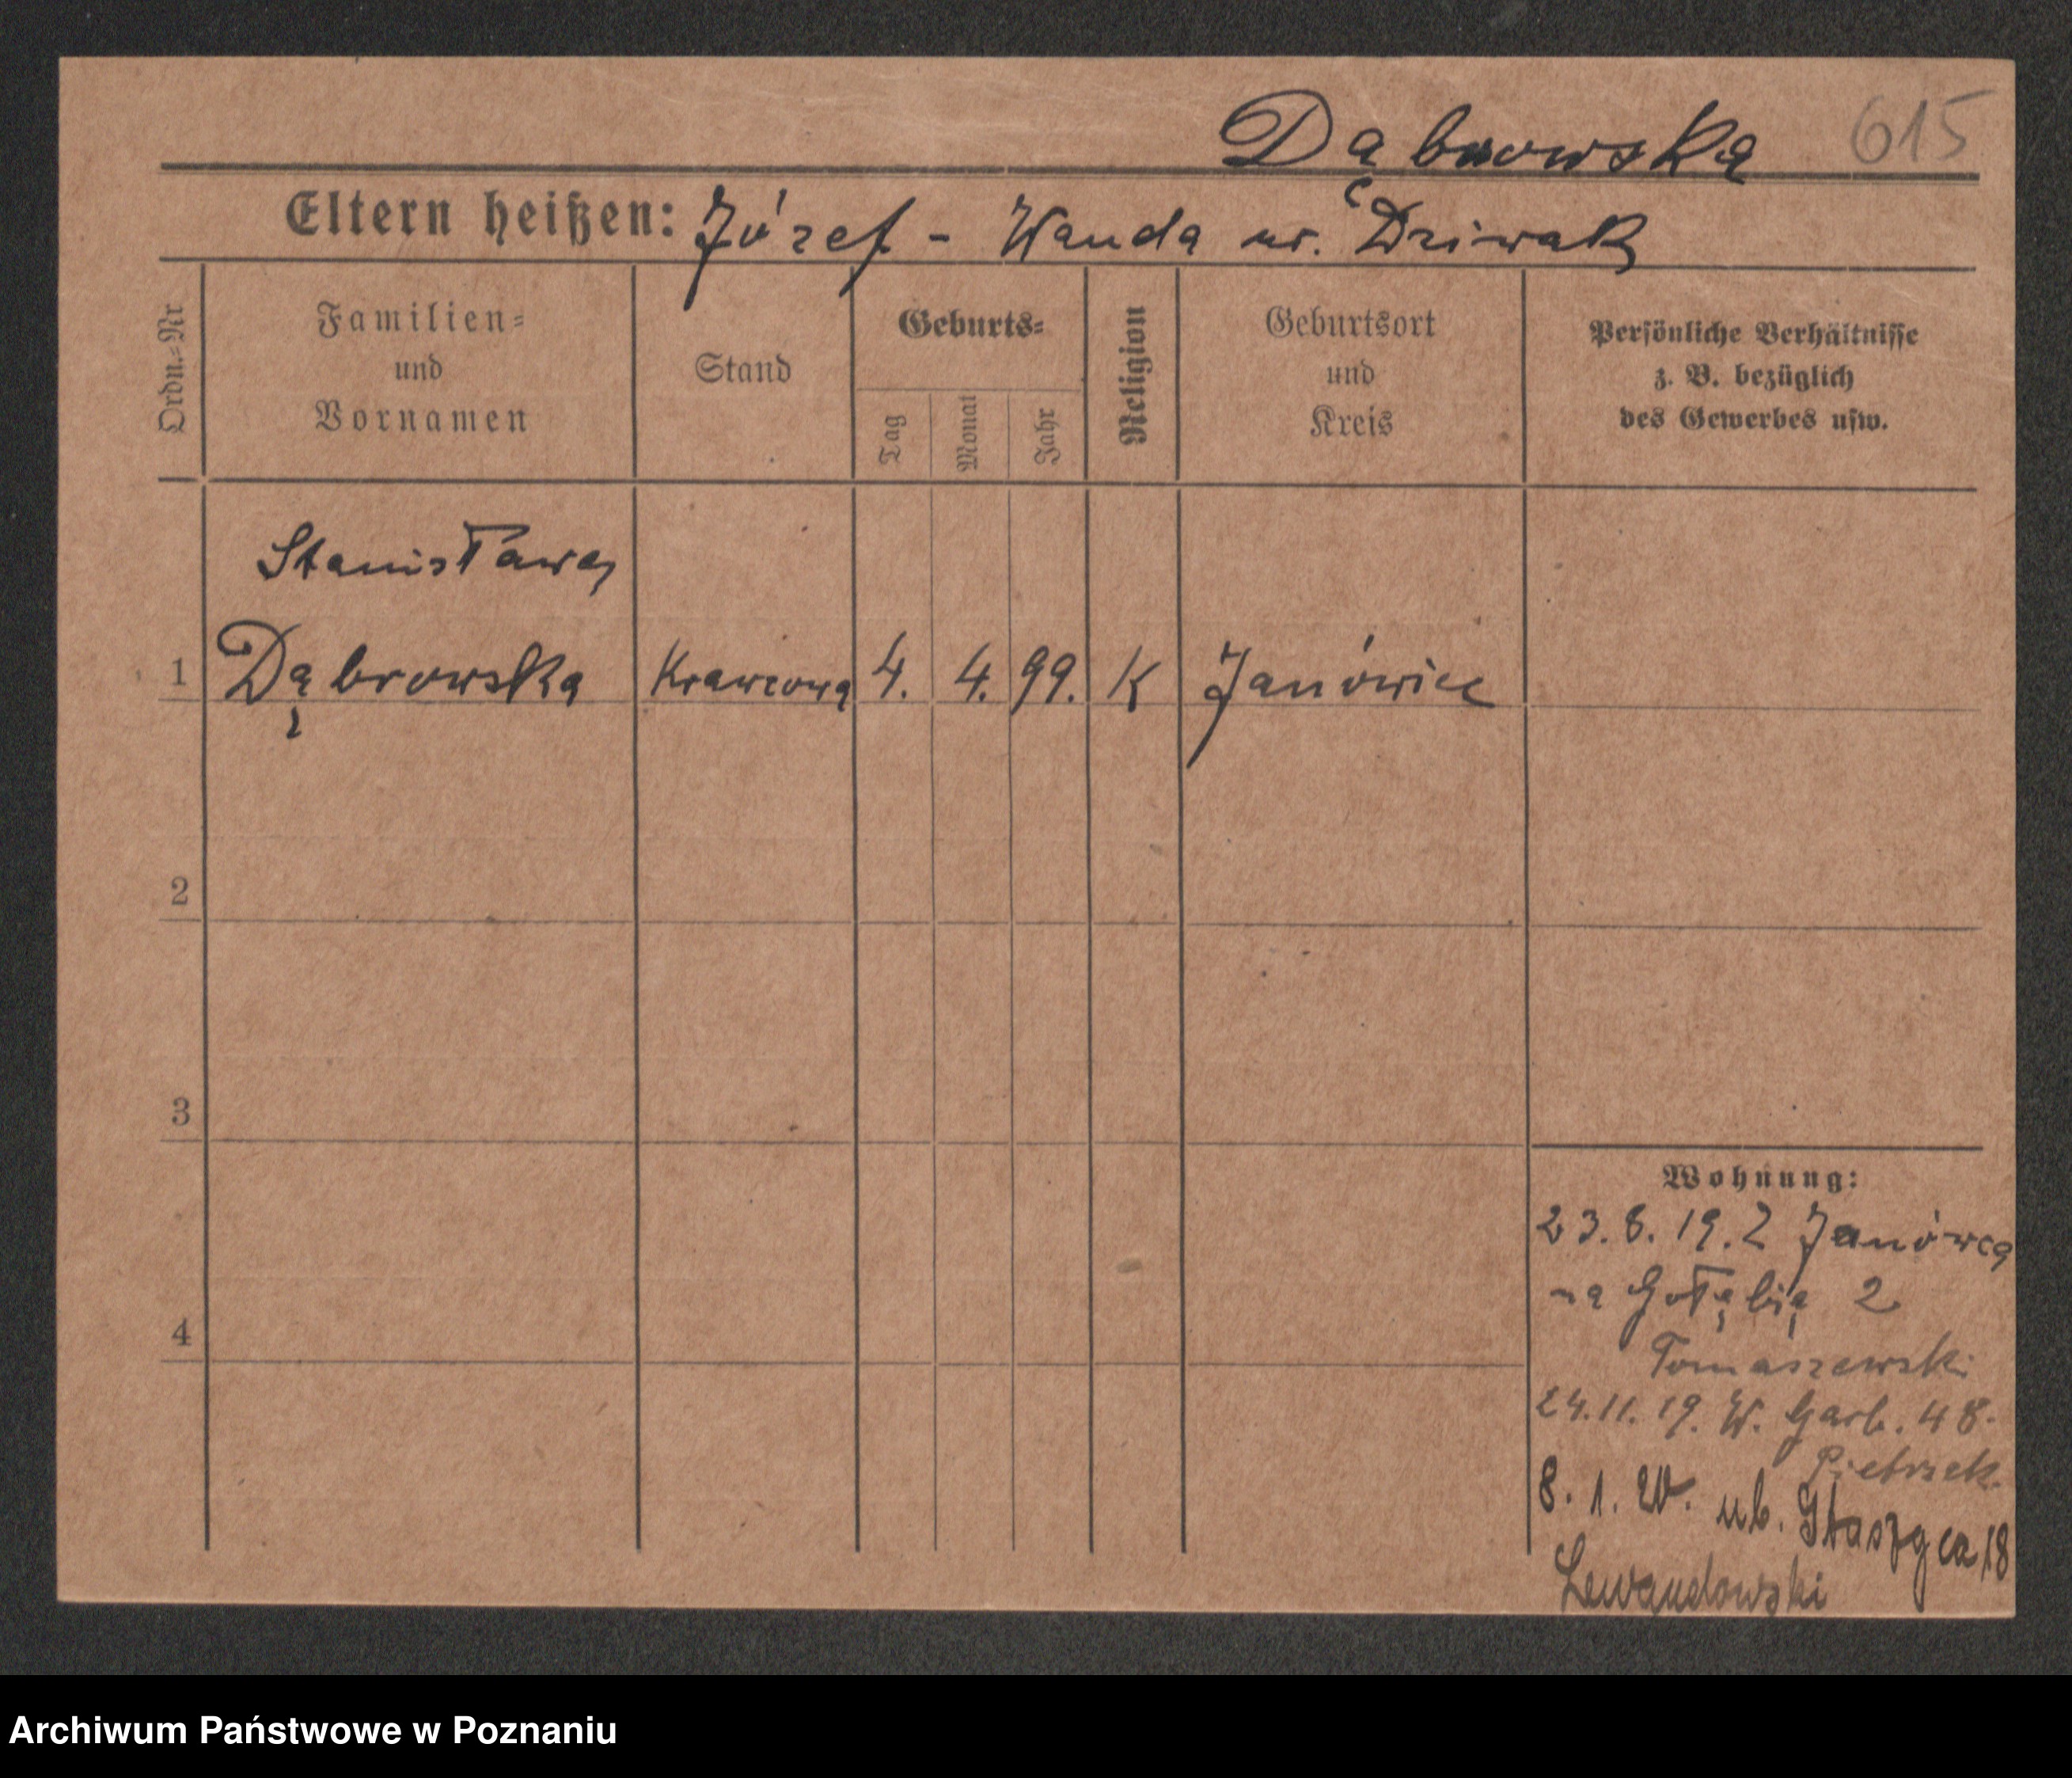 Dąbrowska 615
Eltern heißen: Józef - Wanda ur. Dziwak
Ordn.-Nr
Familien-
und
Vornamen
Stand
Geburts-
Tag
Monat
Jahr
Religion
Geburtsort
und
Kreis
Persönliche Verhältnisse
z. B. bezüglich
des Gewerbes usw.
Stanisława
1 Dąbrowska Krawcowa 4. 4. 99. K Janówiec
2
3
4
Wohnung:
23.8.19. Z Janówca
na Gołębią 2
Tomaszewski
24.11.19. W. Garb. 48.
Pietrzak
8. 1. 20. ub. Staszyca 18
Lewandowski
Archiwum Państwowe w Poznaniu